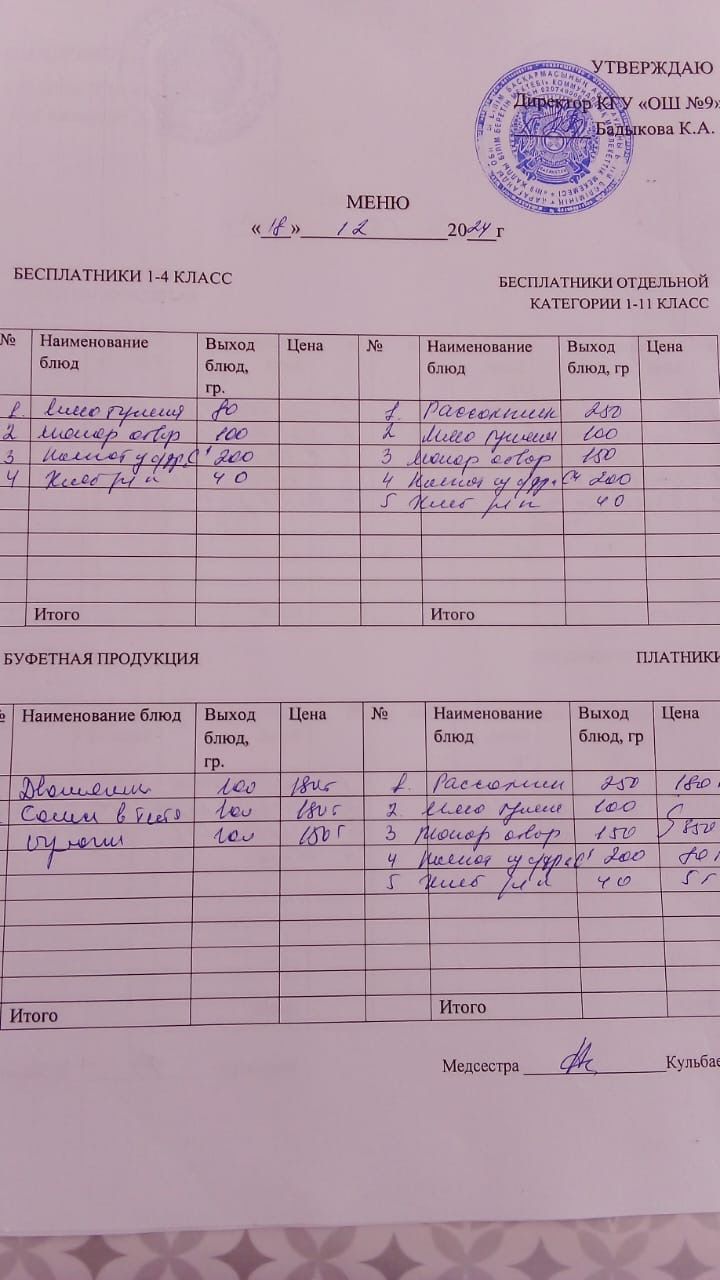 УТВЕРЖДАЮ
Директор КГУ «ОШ №9»
Бадыкова К.А.
МЕНЮ
«18» 12 2024г
БЕСПЛАТНИКИ 1-4 КЛАСС
БЕСПЛАТНИКИ ОТДЕЛЬНОЙ
КАТЕГОРИИ 1-11 КЛАСС
№ Наименование блюд Выход блюд, гр. Цена № Наименование блюд Выход блюд, гр Цена
1. Мясо тушеня 80 1. Рассольник 250
2 макар отвар 100 2 Мясо тушеня 100
3 Компот су фр 200 3 макар отвар 150
4 Хлеб рж п 40 4 Компот су фр 200
5 Хлеб рж п 40
Итого Итого
БУФЕТНАЯ ПРОДУКЦИЯ
ПЛАТНИКИ
Наименование блюд Выход блюд, гр. Цена № Наименование блюд Выход блюд, гр Цена
100 180т 1. Рассольник 250 180
в тесте 100 180т 2. Мясо тушеня 100
100 150т 3 Макар отвар 150 850
4 Компот су фр 200 80
5 Хлеб рж п 40 5т
Итого Итого
Медсестра Кульбае